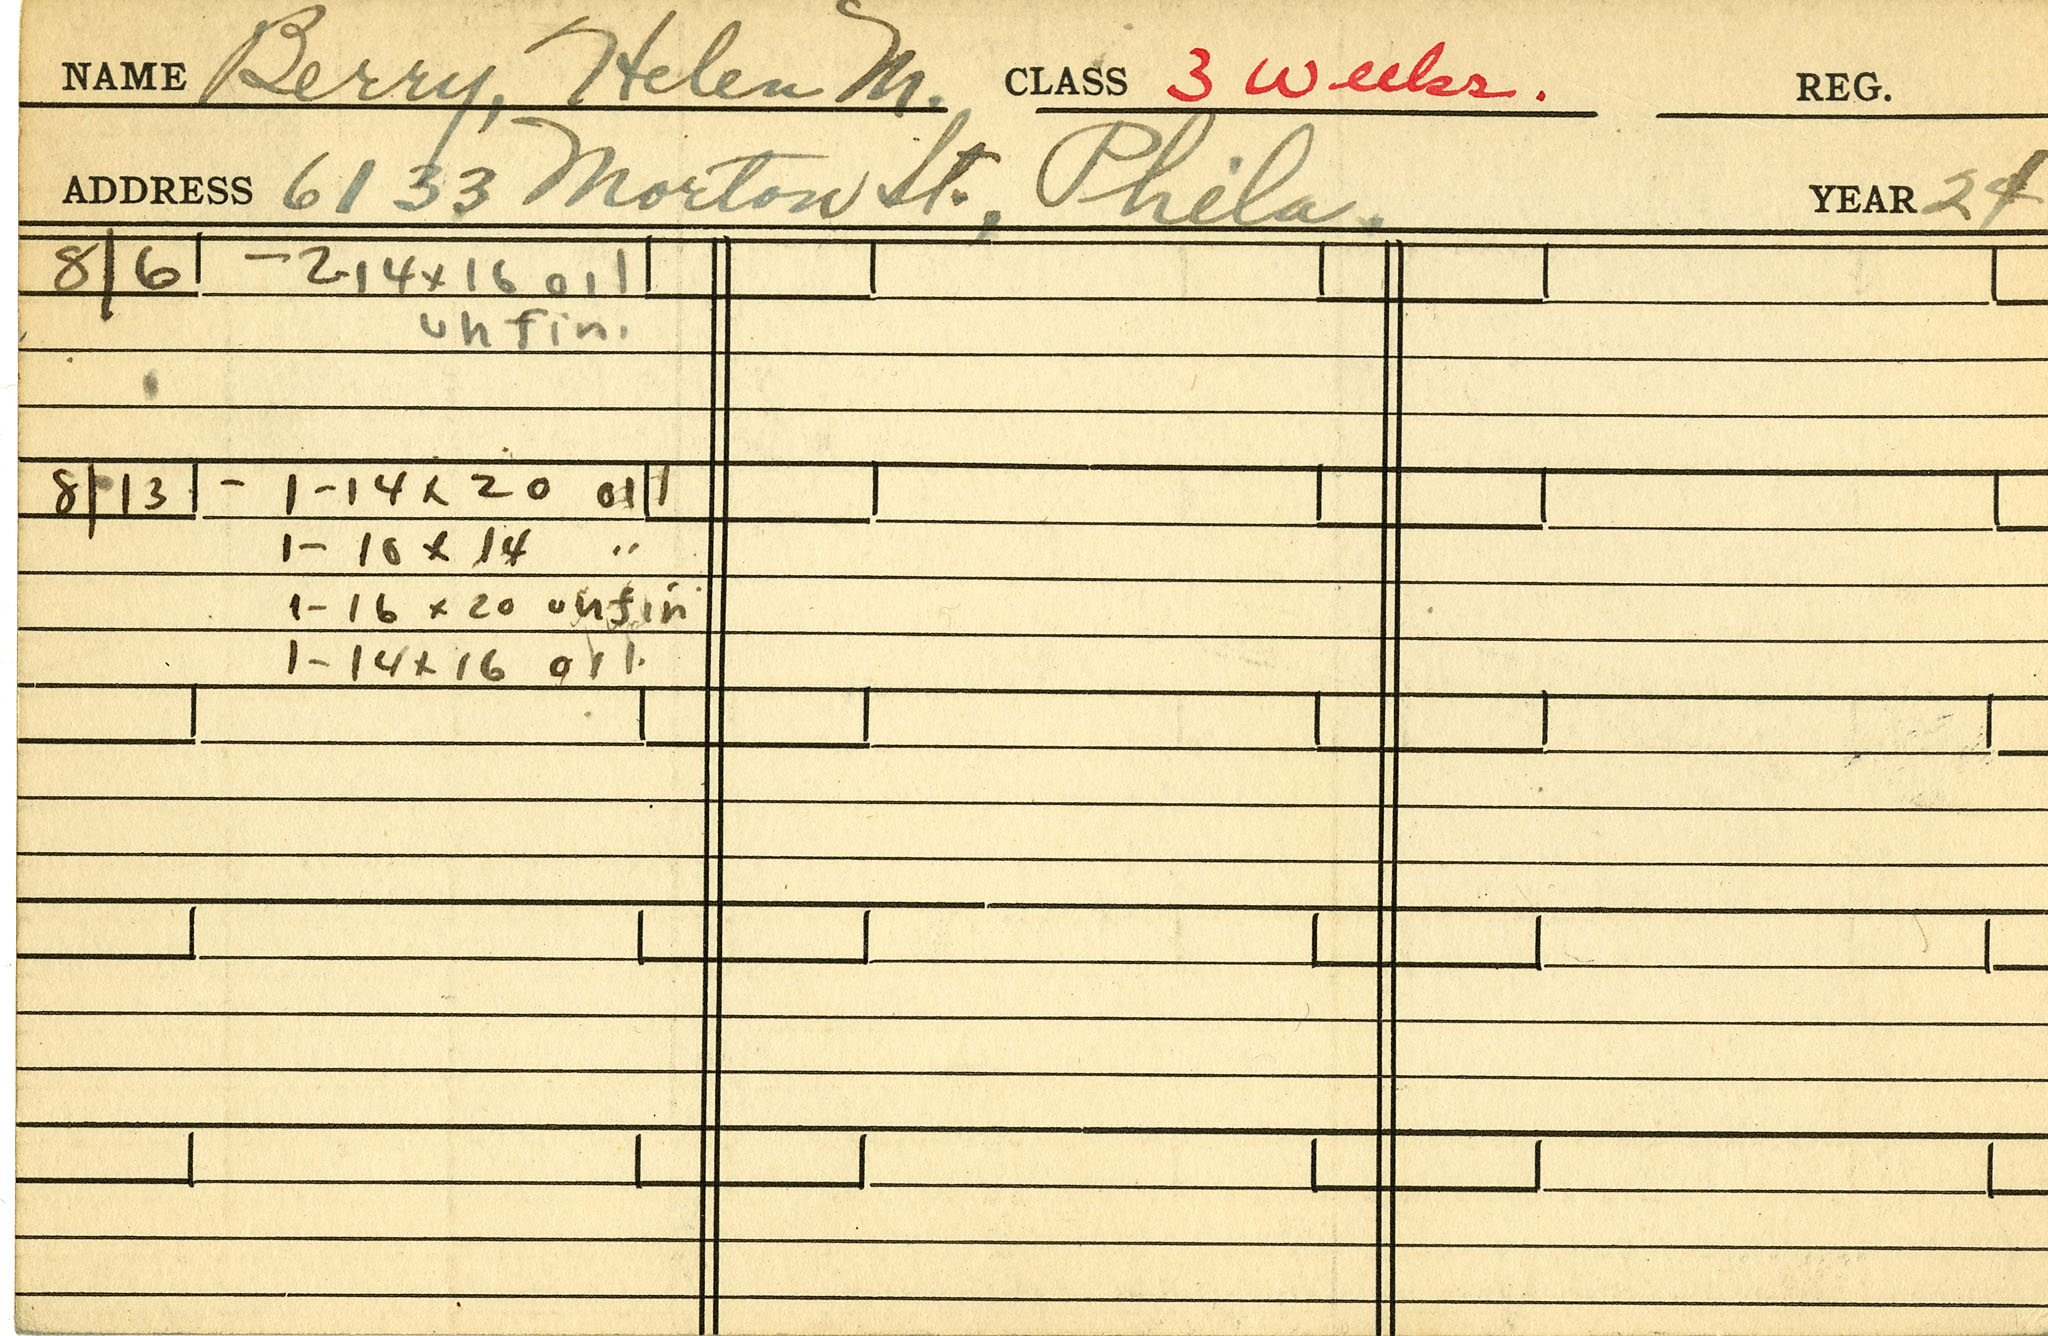 NAME Berry, Helen M. CLASS 3 Weeks. REG.
ADDRESS 6133 Morton St., Phila. YEAR 24
8/6 - 2-14x16 oil
unfin.
8/13 - 1-14x20 oil
1- 10 x 14 "
1- 16 x 20 unfin
1-14x16 oil.